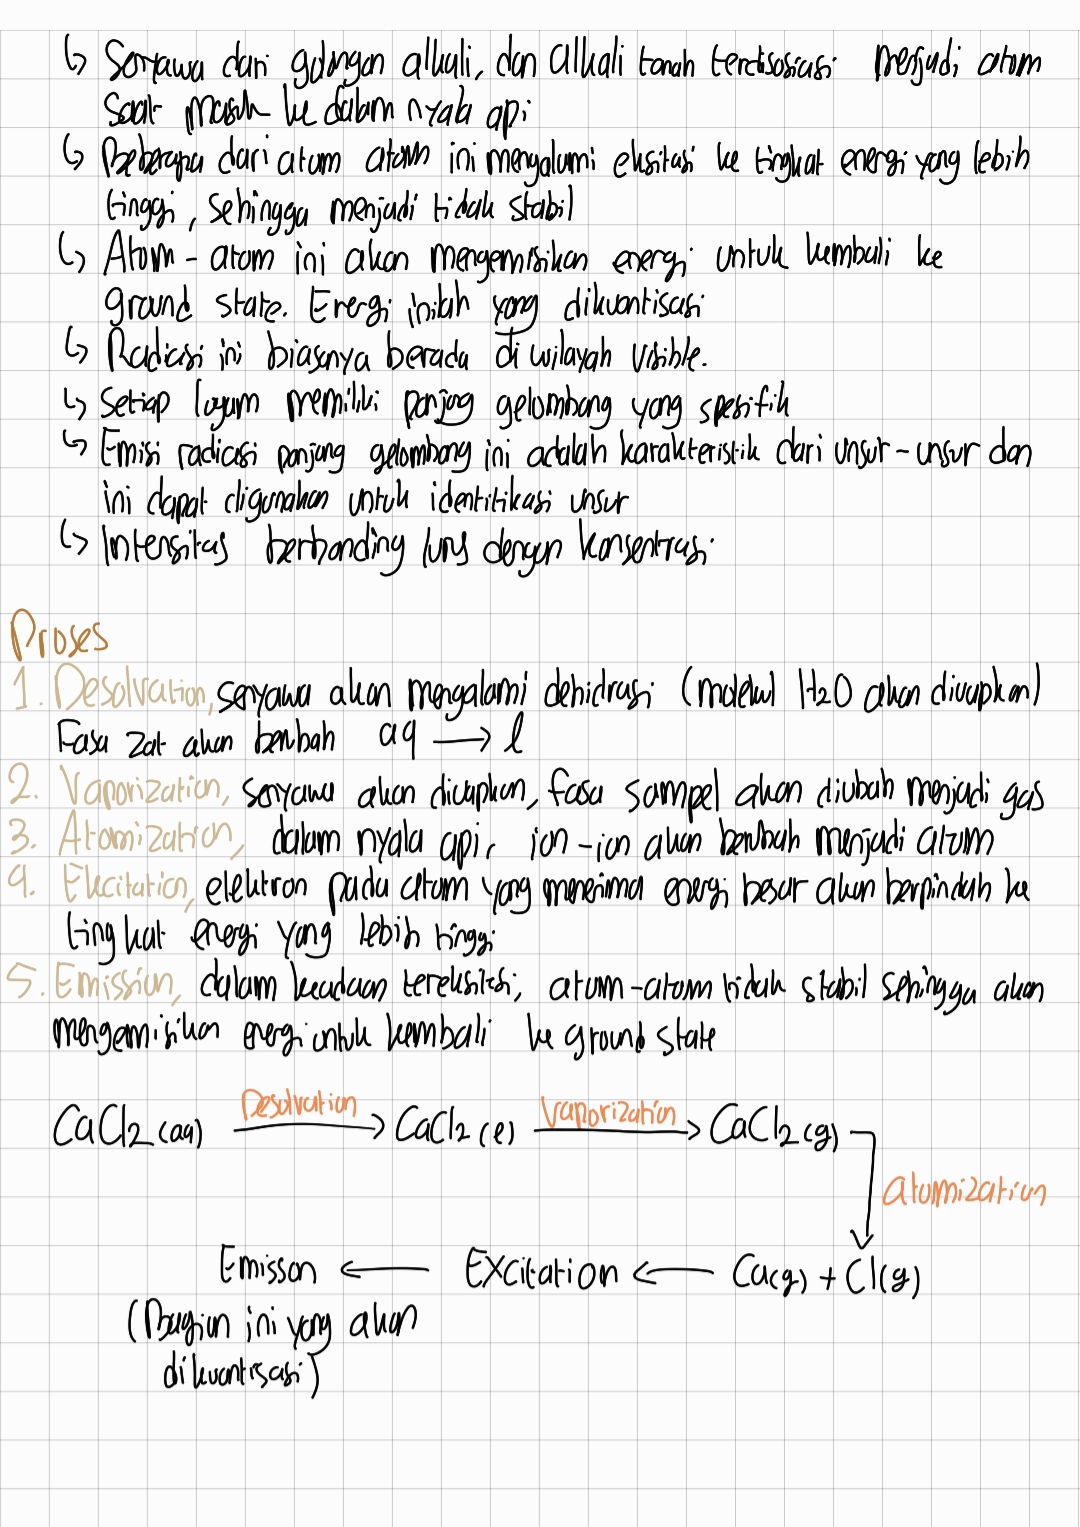 ↳ Senyawa dari golongan alkali, dan alkali tanah terdisosiasi menjadi atom
saat masuk ke dalam nyala api
↳ Beberapa dari atom atom ini mengalami eksitasi ke tingkat energi yang lebih
tinggi, sehingga menjadi tidak stabil
↳ Atom - atom ini akan mengemisikan energi untuk kembali ke
ground state. Energi inilah yang dikuantisasi
↳ Radiasi ini biasanya berada di wilayah visible.
↳ Setiap logam memiliki panjang gelombang yang spesifik
↳ Emisi radiasi panjang gelombang ini adalah karakteristik dari unsur-unsur dan
ini dapat digunakan untuk identifikasi unsur
↳ Intensitas berbanding lurus dengan konsentrasi
Proses
1. Desolvation, senyawa akan mengalami dehidrasi (molekul H2O akan diuapkan)
Fasa zat akan berubah aq → l
2. Vaporization, senyawa akan diuapkan, fasa sampel akan diubah menjadi gas
3. Atomization, dalam nyala api, ion-ion akan berubah menjadi atom
4. Ekcitation, elektron pada atom yang menerima energi besar akan berpindah ke
tingkat energi yang lebih tinggi
5. Emission, dalam keadaan tereksitasi, atom-atom tidak stabil sehingga akan
mengemisikan energi untuk kembali ke ground state
CaCl2 (aq) Desolvation → CaCl2 (l) Vaporization → CaCl2 (g)
atomization
Emisson ← Excitation ← Ca(g) + Cl(g)
(Bagian ini yang akan
dikuantisasi)